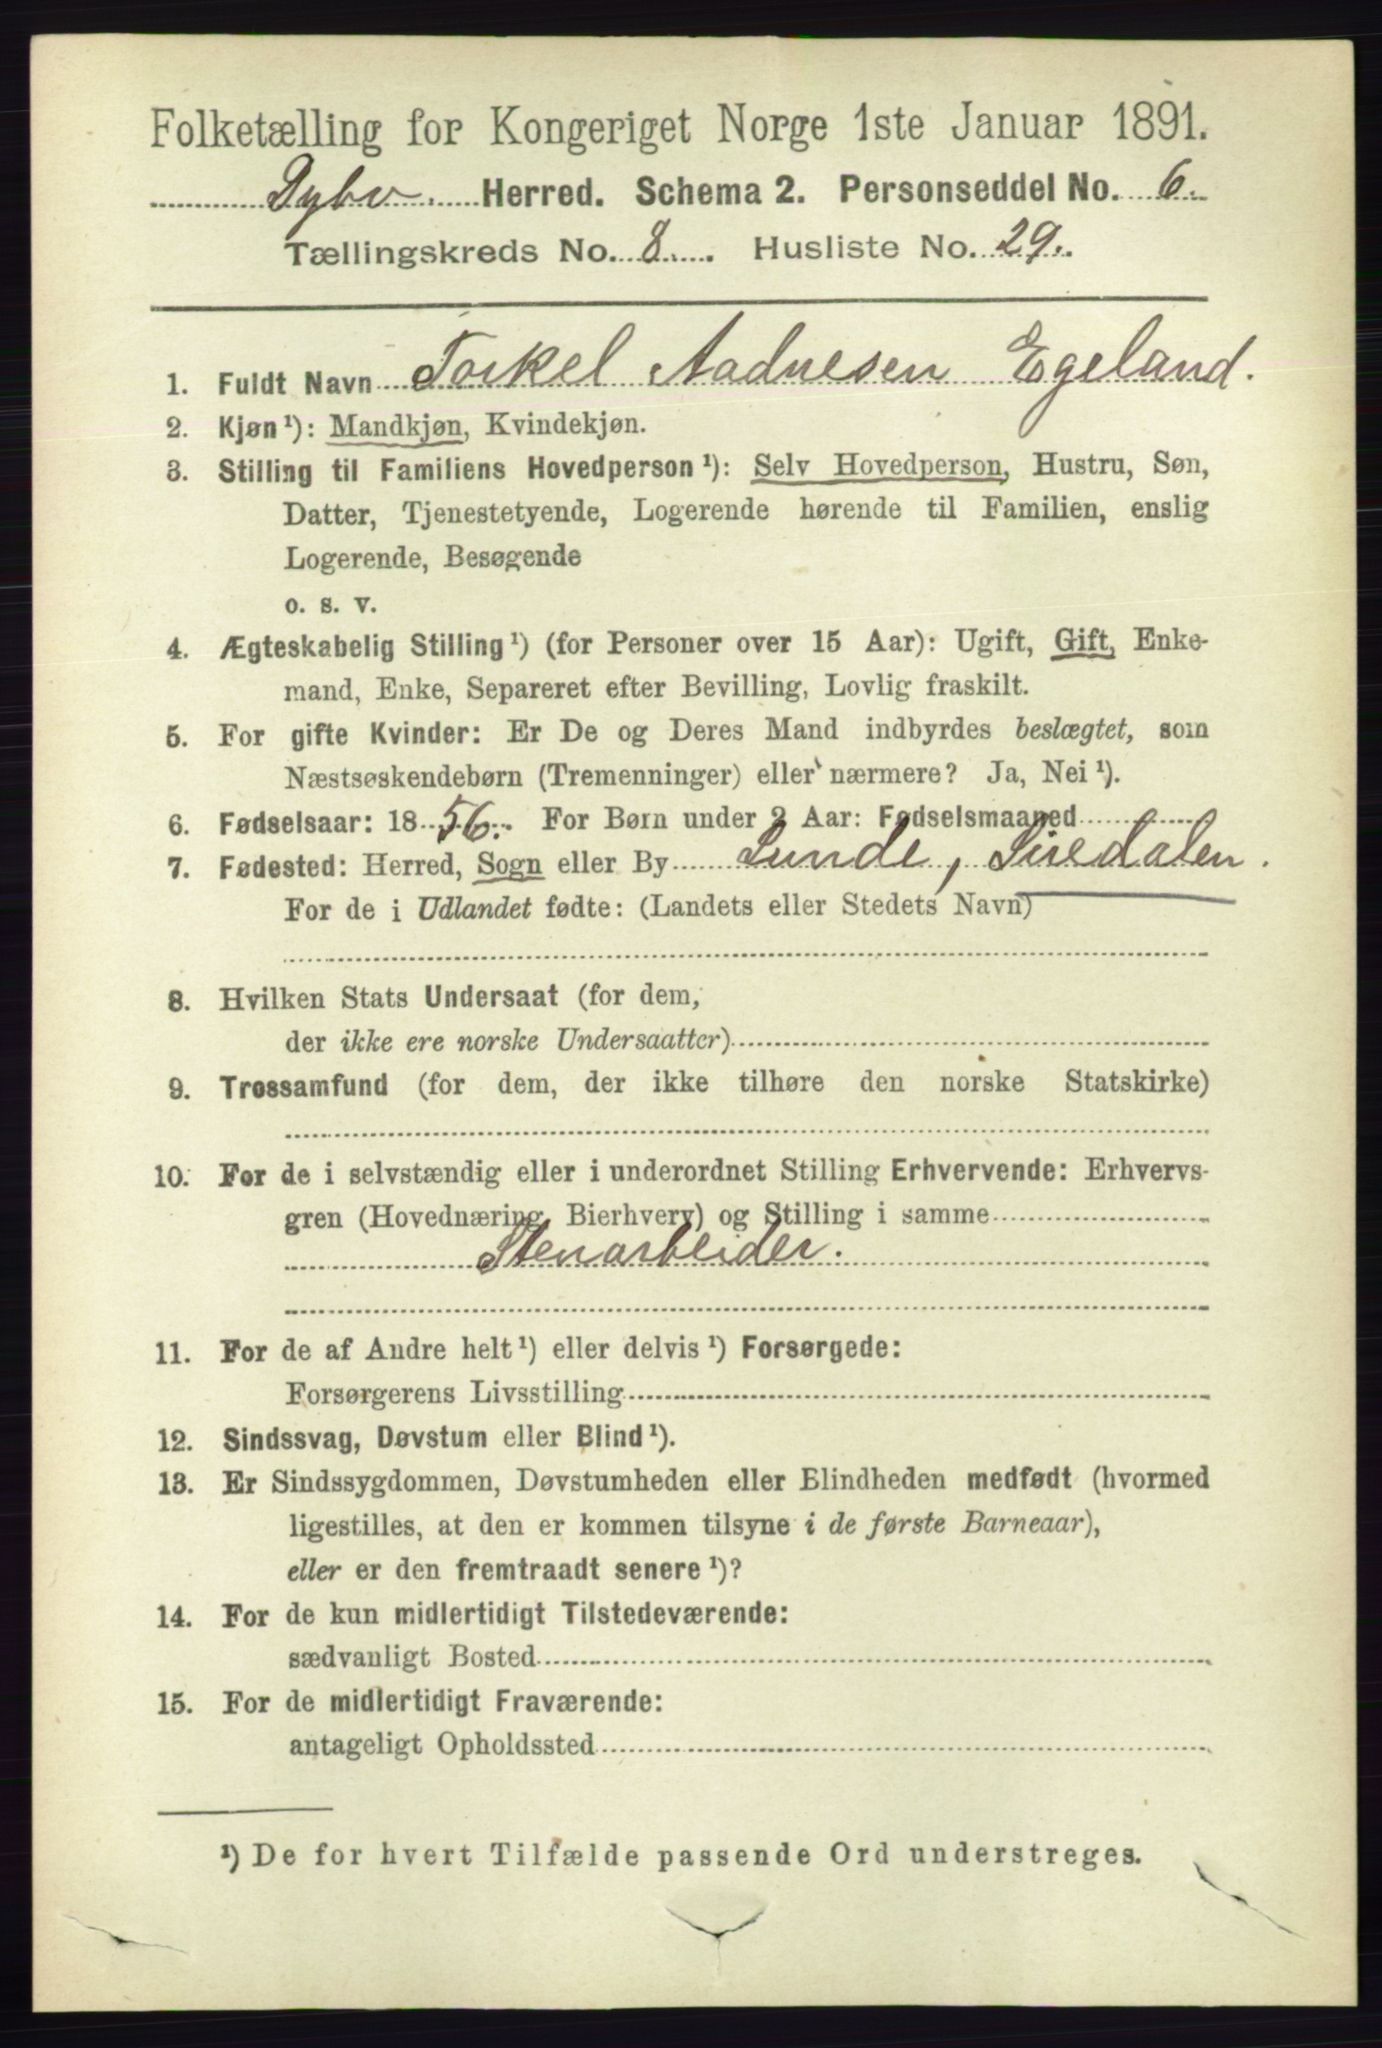 Folketælling for Kongeriget Norge 1ste Januar 1891.
Dybv. Herred. Schema 2. Personseddel No. 6.
Tællingskreds No. 8. Husliste No. 29.
1. Fuldt Navn Torkel Aadnesen Egeland.
2. Kjøn ¹): Mandkjøn, Kvindekjøn.
3. Stilling til Familiens Hovedperson ¹): Selv Hovedperson, Hustru, Søn,
Datter, Tjenestetyende, Logerende hørende til Familien, enslig
Logerende, Besøgende
o. s. v.
4. Ægteskabelig Stilling ¹) (for Personer over 15 Aar): Ugift, Gift, Enke-
mand, Enke, Separeret efter Bevilling, Lovlig fraskilt.
5. For gifte Kvinder: Er De og Deres Mand indbyrdes beslægtet, som
Næstsøskendebørn (Tremenninger) eller nærmere? Ja, Nei ¹).
6. Fødselsaar: 1856. For Børn under 2 Aar: Fødselsmaaned
7. Fødested: Herred, Sogn eller By Lunde, Siredalen.
For de i Udlandet fødte: (Landets eller Stedets Navn)
8. Hvilken Stats Undersaat (for dem,
der ikke ere norske Undersaatter)
9. Trossamfund (for dem, der ikke tilhøre den norske Statskirke)
10. For de i selvstændig eller i underordnet Stilling Erhvervende: Erhvervs-
gren (Hovednæring, Bierhverv) og Stilling i samme
Stenarbeider.
11. For de af Andre helt ¹) eller delvis ¹) Forsørgede:
Forsørgerens Livsstilling
12. Sindssvag, Døvstum eller Blind ¹).
13. Er Sindssygdommen, Døvstumheden eller Blindheden medfødt (hvormed
ligestilles, at den er kommen tilsyne i de første Barneaar),
eller er den fremtraadt senere ¹)?
14. For de kun midlertidigt Tilstedeværende:
sædvanligt Bosted
15. For de midlertidigt Fraværende:
antageligt Opholdssted
¹) De for hvert Tilfælde passende Ord understreges.